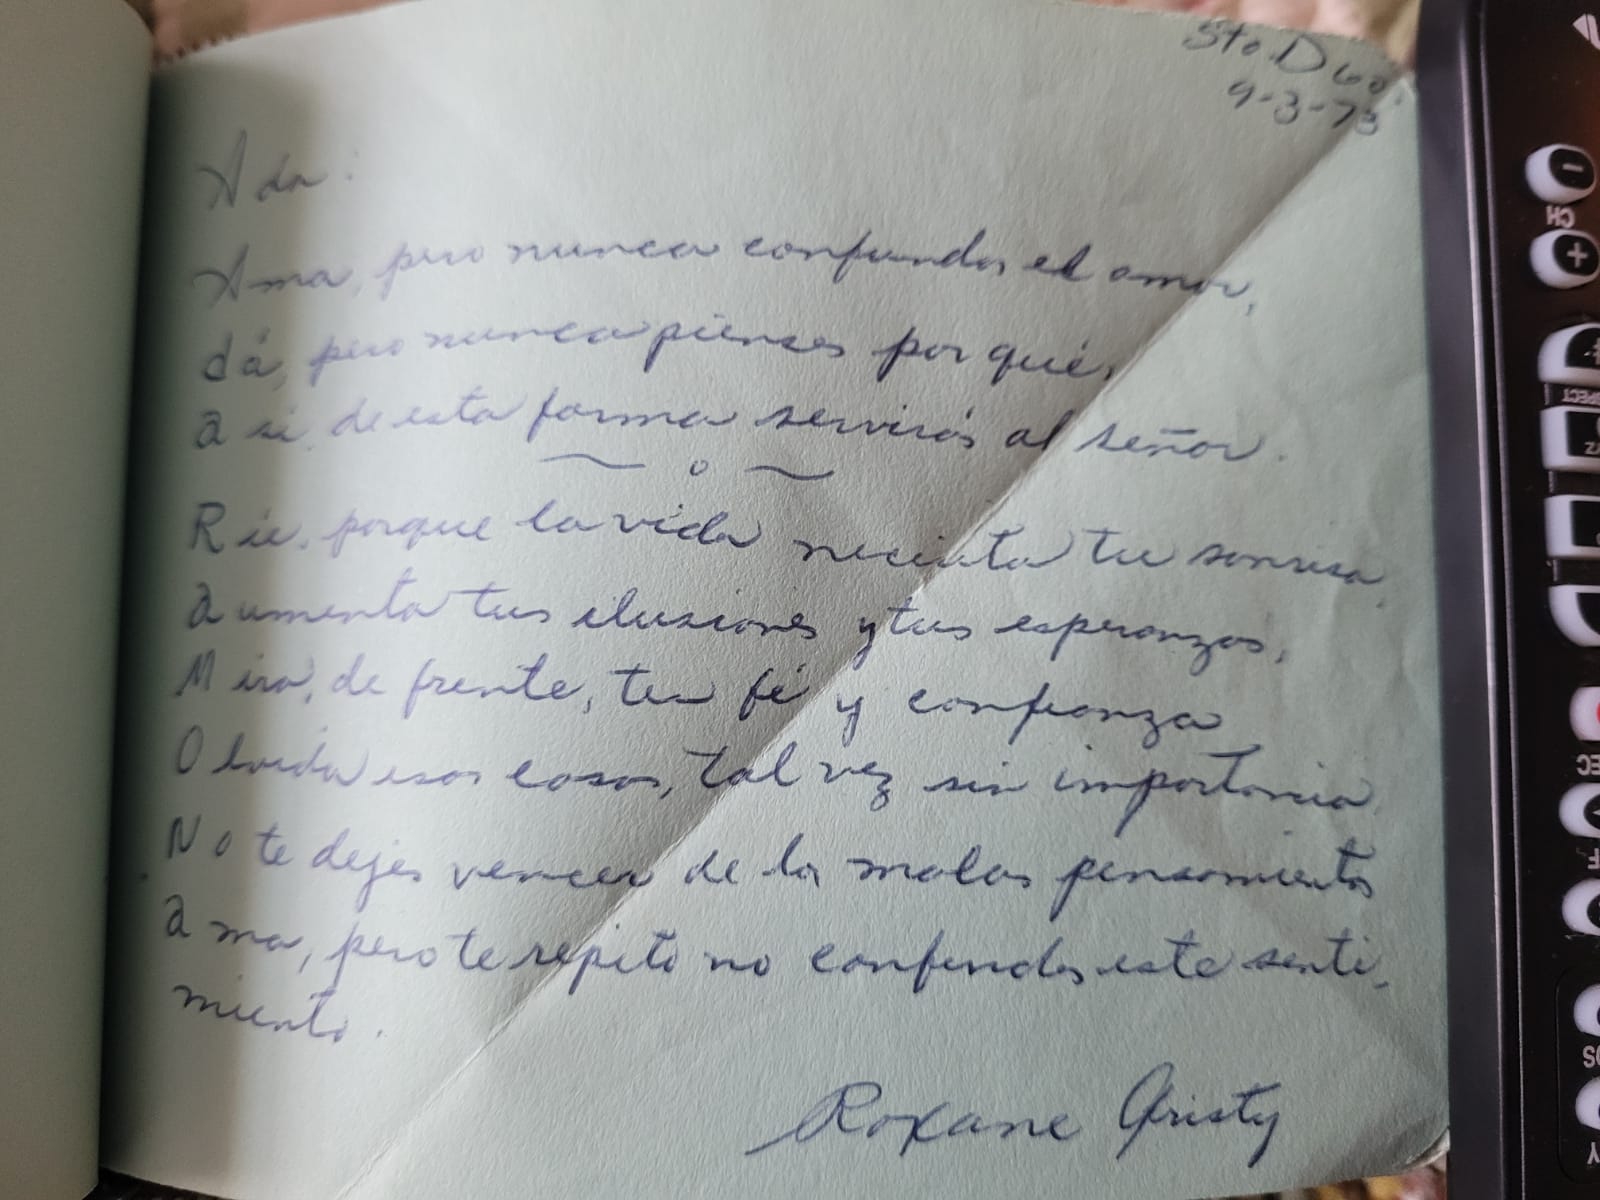 Sto. Dgo.
9-3-73
Ada:
Ama, pero nunca confundas el amor,
dá, pero nunca pienses por qué,
a si, de esta forma servirás al señor.
~ o ~
Rie, porque la vida necesita tu sonrisa
aumenta tus ilusiones y tus esperanzas,
Mira, de frente, ten fé y confianza
Olvida esas cosas, tal vez sin importancia
No te dejes vencer de los malos pensamientos
ama, pero te repito no confundas este senti-
miento.
Roxane
CH
-
+